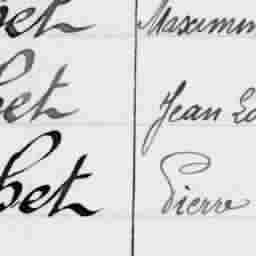 bet Maximin
bet Jean Lo
bet Pierre